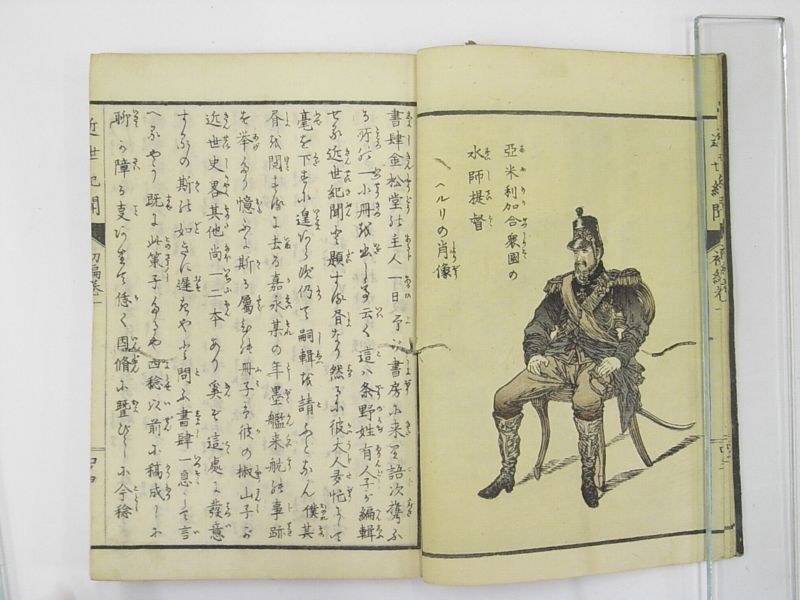 亞米利加合衆國の
水師提督
ヘルリの肖像
書肆金松堂の主人一日予が書房に来り語次携ふ
る所の一小冊を出し示して云く這は条野姓有人子が編輯
せる近世紀聞と題する書なり然るに彼大人多忙にして
毫を下すに遑あらず仍て嗣輯を請ふとなん僕其
書を閲するに去る嘉永某の年墨艦来航の事跡
を挙たり憶ふに斯る属の冊子は彼の椒山子が
近世史畧其他尚一二本あり奚ぞ這處に發意
するの斯の如きに遅きやと問ふ書肆一息して言
へるやう既に此策子たるや酉稔以前に稿成しに
聊か障る事ありて悠く因脩に曁びしに今稔
近世紀聞
初編巻一